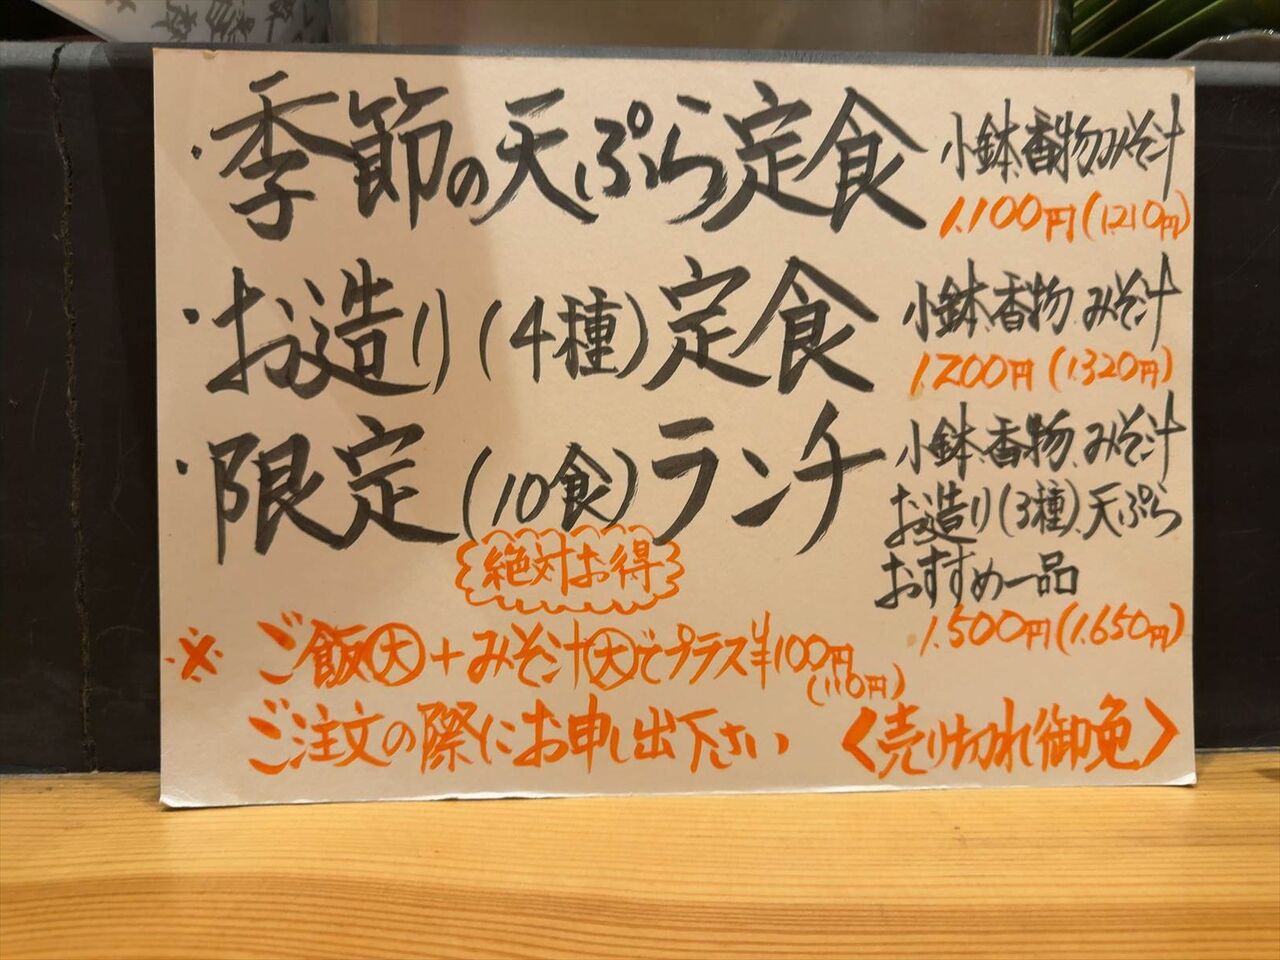 ・季節の天ぷら定食 小鉢、香物、みそ汁
1,100円(1,210円)
・お造り(4種)定食 小鉢、香物、みそ汁
1,200円(1,320円)
・限定(10食)ランチ 小鉢、香物、みそ汁
お造り(3種)、天ぷら
おすすめ一品
1,500円(1,650円)
絶対お得
※ ご飯大+みそ汁大でプラス¥100円
(110円)
ご注文の際にお申し出下さい 〈売り切れ御免〉